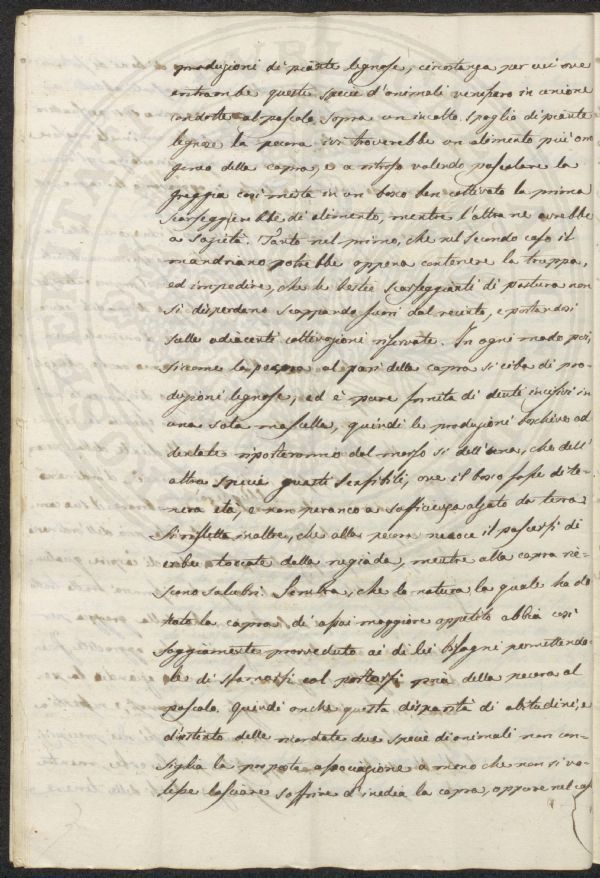 produzioni di piante legnose, circostanza per cui ove
entrambe queste specie d'animali venissero in unione
condotte al pascolo sopra un incolto spoglio di piante
legnose la pecora ivi troverebbe un alimento più con
della capra, e a ritroso volendo pascolare la
greggia così mista in un bosco ben coltivato la prima
scarseggierebbe di alimento, mentre l'altra ne avrebbe
a sazietà. Tanto nel primo, che nel secondo caso il
mandriano potrebbe appena contenere la truppa,
ed impedire, che le bestie scarseggianti di pastura non
si disperdano scappando fuori dal recinto, e portandosi
sulle adiacenti coltivazioni riservate. In ogni modo poi,
siccome la pecora al pari della capra si ciba di pro-
duzioni legnose, ed è pure fornita di denti incisivi in
una sola mascella, quindi le produzioni boschive ad
dentate riporteranno dal morso sì dell'una, che dell'
altra specie guasti sensibili, ove il bosco fosse di te-
nera età, e non per anco a sufficienza alzato da terra
Si rifletta inoltre, che alla pecora nuoce il pascersi di
erbe toccate dalla rugiada, mentre alla capra rie-
scono salubri. Sembra, che la natura, la quale ha do
tato la capra di assai maggiore appetito abbia così
saggiamente provveduto ai di lei bisogni permettendo-
le di sfamarsi col portarsi pria della pecora al
pascolo. Quindi anche questa disparità di abitudini, e
d'istinto delle mandate due specie di animali non con-
siglia la proposta associazione a meno che non si vo-
lesse lasciare soffrire d'inedia la capra, oppure nel cas